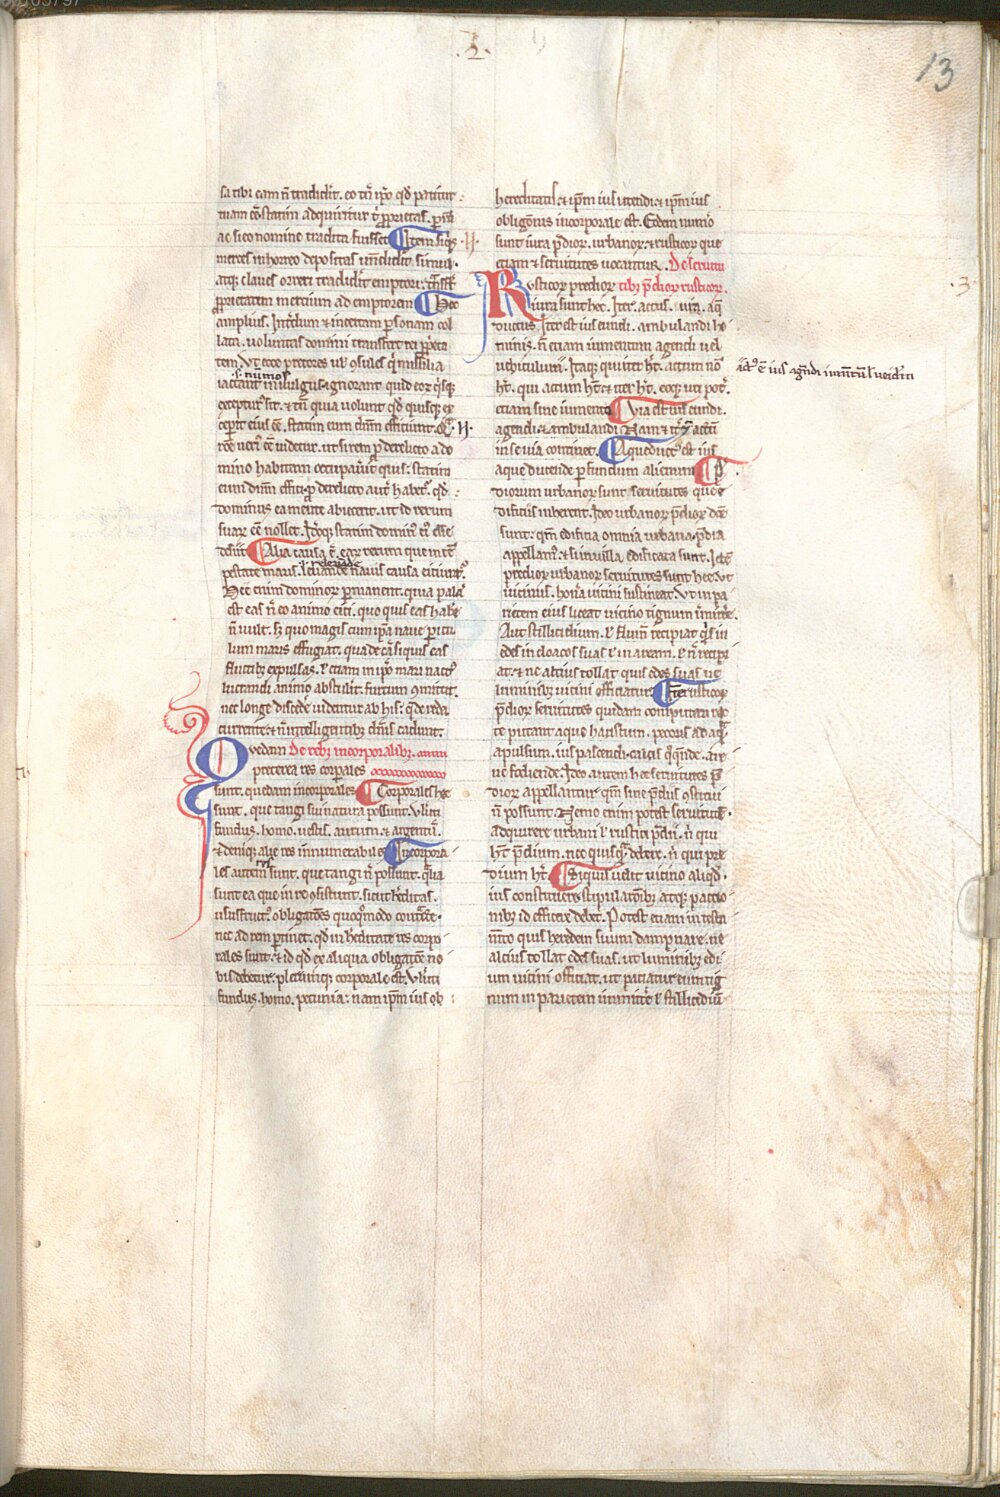 .2.
13
sa tibi eam ñ tradidit. eo tñ ip̃o qd̃ patitur
tuam cõstatim adquiritur t̃ p̃prietas. p̃inde
ac si eo nomine tradita fuisset Item siq̃s
merces in horreo depositas uendidit. simul
atq; claues orrei tradiderit emptori. t̃nsfert
p̃prietatem mercium ad emptorem Hoc
amplius. Interdum & in certam p̃sonam col
lata. uoluntas domini transfert rei p̃prieta
tem. Vt ecce pretores ul̃ c̃sules q̃ missilia
.s. num̃os
iactant in uulgus. ignorant quid eor̃ q̃sq;
excepturꝰ sit. & tñ quia uolunt qd̃ quisq; ex
ceperit eiꝰ ẽẽ. statim eum dñm efficiunt. Q̃
rõe ueriꝰ ẽẽ uidetur. ut si rem p̃ derelicto a do
mino habitam occupauerit quis: statim
eum dñm effici. p̃ derelicto aut̃ habetꝰ. qd̃
dominus ea mente abiecerit. ut id rerum
suar̃ ẽẽ nollet. Ido q; statim dominꝰ eiꝰ esse
desiit Alia causa ẽ. ear̃ rerum que in tẽ
pestate maris. leuande nauis causa eiciunt̃.
Hec enim dominor̃ permanent. quia palã
est eas ñ eo animo eici. quo quis eas habere
ñ uult. s; quo magis cum ip̃a naue p̃icu
lum maris effugiat. qua de cã siquis eas
fluctib; expulsas. ł etiam in ip̃o mari nactꝰ
lucrandi animo abstulit. furtum cmittit.
nec longe discedẽ uidentur ab his: q̃ de reda
currente & ñ intelligentib; dñis cadunt.
Quedam De reb; incorporalib;.
preterea res corporales
sunt. quedam incorporales Corporales he
sunt. que tangi sui natura possunt. Vl̃uti
fundus. homo. uestis. aurum. & argentũ.
& deniq; alie res innumerabiles Incorpora
les autem res sunt. que tangi ñ possunt. qualia
sunt ea que in iure cisistunt. sicut h̃editas.
ususfructꝰ. obligatões quoq̃modo contracte.
nec ad rem p̃tinet. qd̃ in h̃editate res corpo
rales sunt. & id qd̃ ex aliqua obligatõe no
bis debetur. plerumq; corporale est. Vl̃uti
fundus. homo. pecunia: nam ip̃m ius ob
hereditatis. & ip̃m ius utendi. & ip̃m ius
obligõnis incorporale est. Eodem numero
sunt iura p̃dior̃. urbanor̃. & rusticor̃ que
etiam & seruitutes uocantur. De seruitu
Rusticor̃ predior̃ tib; p̃dior̃ rusticor̃.
iura sunt hec. Iter. actus. uia. aq̃
ductus. Iter est ius eundi. ambulandi ho
minis. ñ etiam iumentum agendi uel
uehiculum. Itaq; qui iter h̃t. actum nõ
h̃t. qui actum h̃t & iter h̃t. eoq; uti pot̃.
etiam sine iumento Via est ius eundi.
agendi. & ambulandi. Nam & iter & actũ
in se uia continet. Aqueductꝰ est ius
aque ducende p̃ fundum alienum P̃
diorum urbanor̃ sunt seruitutes que
edificiis inherent. Ideo urbanor̃ p̃dior̃ dcẽ
sunt: qm̃ edificia omnia urbana p̃dia
appellamꝰ. & si in uilla edificata sunt. Itẽ
predior̃ urbanor̃ seruitutes sunt hec. Vt
uicinus. honera uicini sustineat. Vt in pa
rietem eius liceat uicino tignum immittẽ.
Aut stillicidium. ł flumẽ recipiat q̃s in
edes in cloacos suas ł in aream. ł ñ recipi
at. & ne altius tollat quis edes suas ut
luminib; uicini officiatur. Inter rusticor̃
p̃dior̃ seruitutes quidam computari rec
te putant. aque haustum. pecoris ad aq̃
apulsum. ius pascendi. calcis q̃q̃ende. are
ne fodiende. Ideo autem he seruitutes p̃
dior̃ appellantur qm̃ sine p̃diis c̃stitui
ñ possunt. Nemo enim potest seruitutẽ
adquirere urbani ł rustici p̃dii. ñ qui
h̃t p̃dium. nec quisq̃ debere. ñ qui pre
dium h̃t. Siquis uelit uicino aliqd̃
ius constituere stipulatõib; atq; pactio
nib; id efficere debet. Potest etiam in testa
mẽto quis heredem suum dampnare. ne
altius tollat edes suas. ut luminib; edi
um uicini officiat. ut patiatur eum tig
num in parietem immittẽ ł stillicidiũ